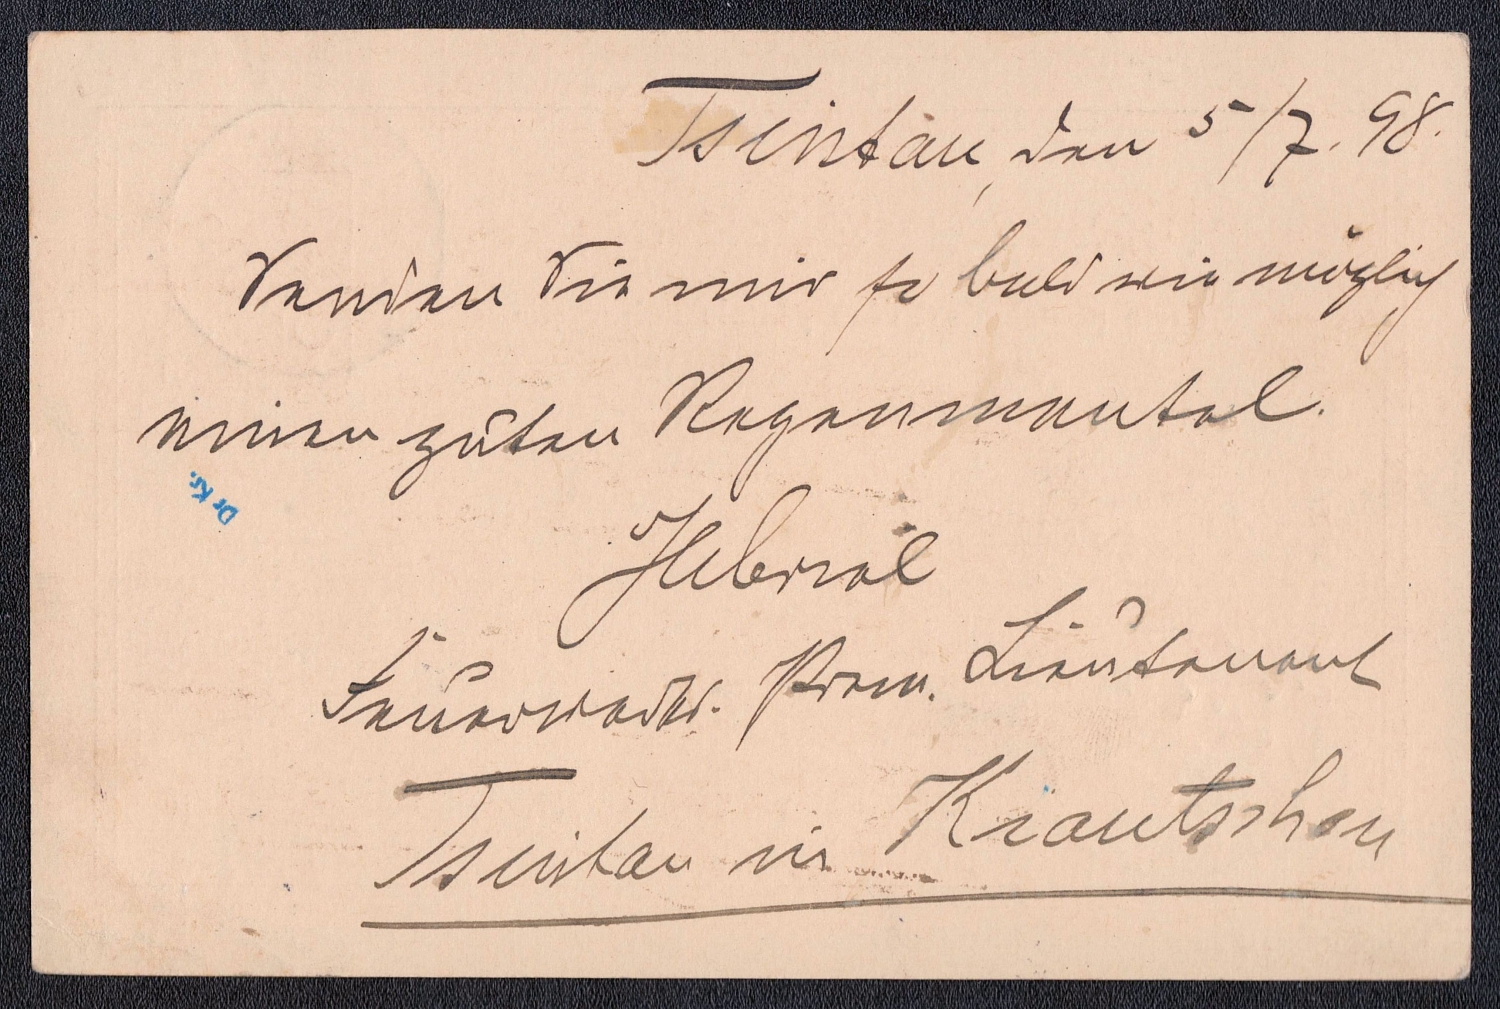 Tsintau, den 5/7. 98.
Senden Sie mir so bald wie möglich
einen guten Regenmantel.
Dr Kr.
Feuerwerks. Prem. Lieutenant
Tsintau in Kiautschau